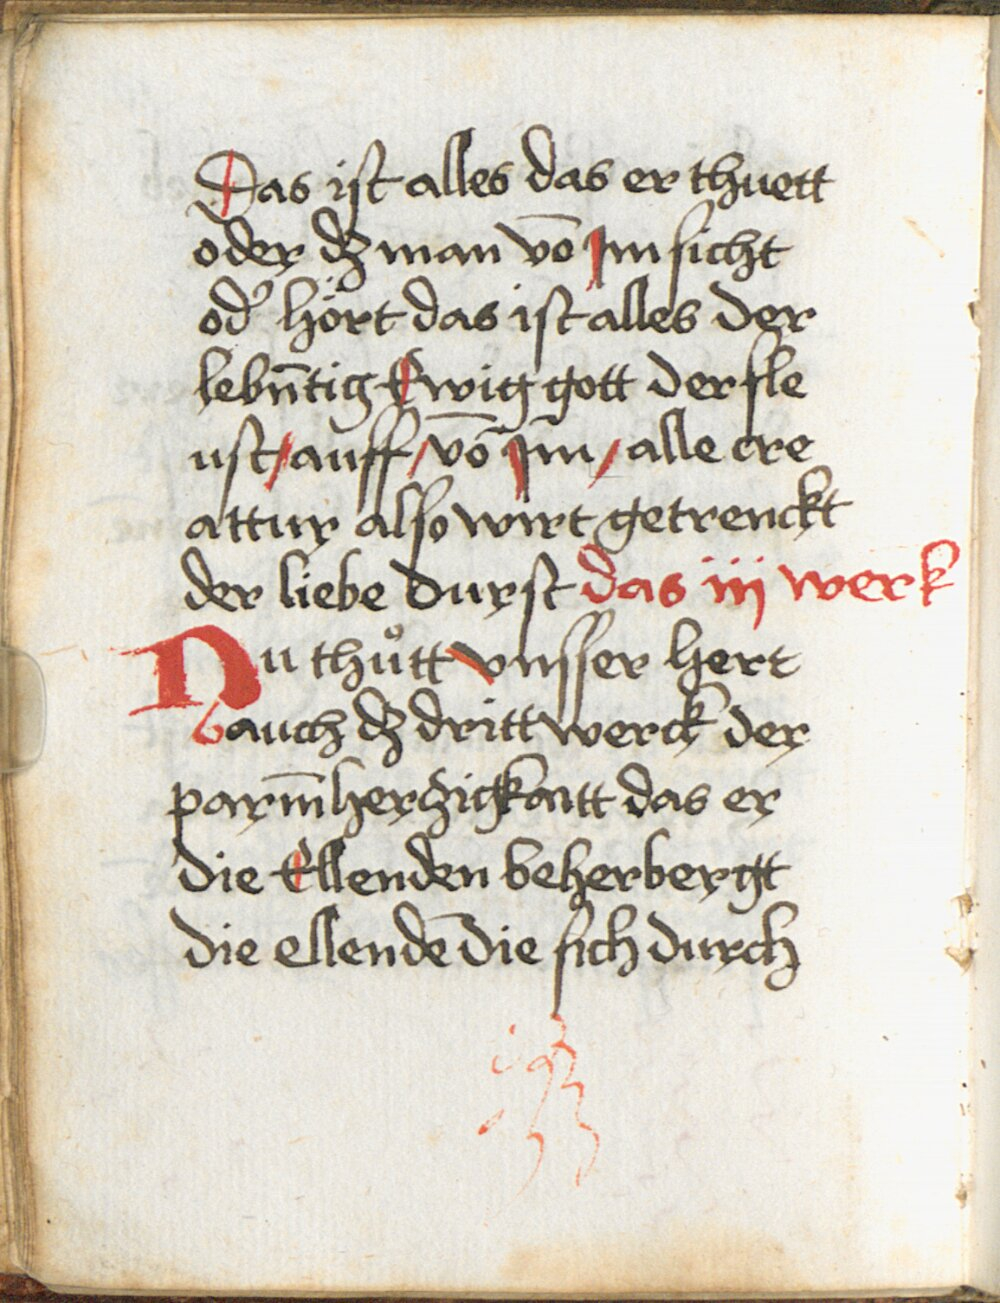 Das ist alles das er thuett
oder dz man vō Im sicht
od' hört das ist alles der
lebn̄tig Ewig gott der fle
ust / auff / vō Im / alle cre
attur also wirt getrenckt
der liebe durst das iij werk
Nu thůtt vnsser hert
auch dz dritt werck der
parm̄herzigkaitt das er
die Ellenden beherbergt
die ellendē die sich durch